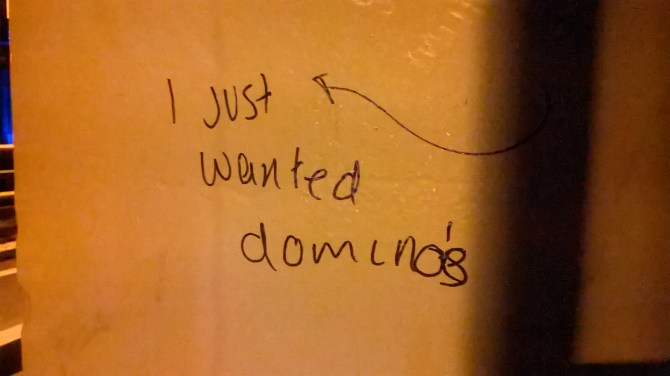 I just
wanted
domino's